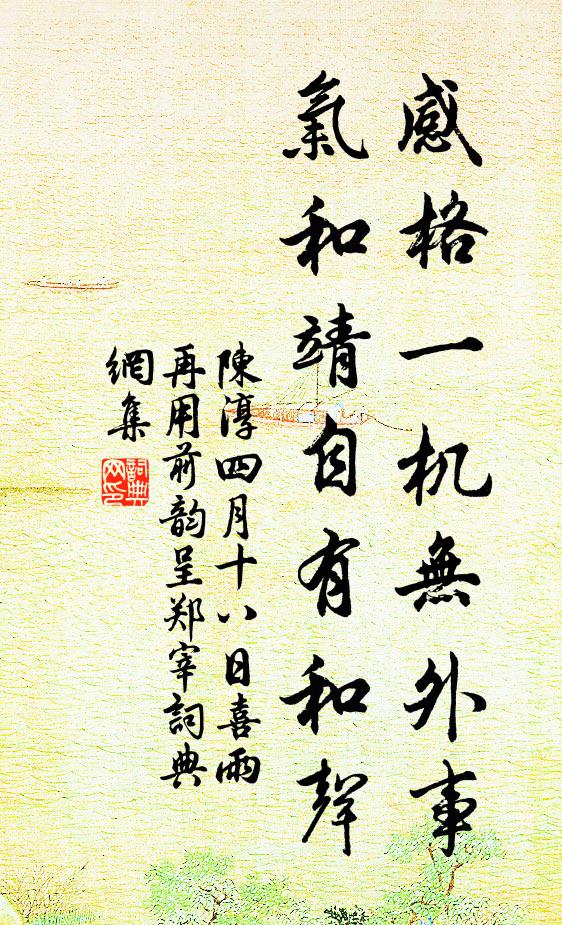 感格一机無外事
氣和靖自有和聲
陳淳四月十八日喜雨
再用前韵呈郑宰詞典
網集
詞典